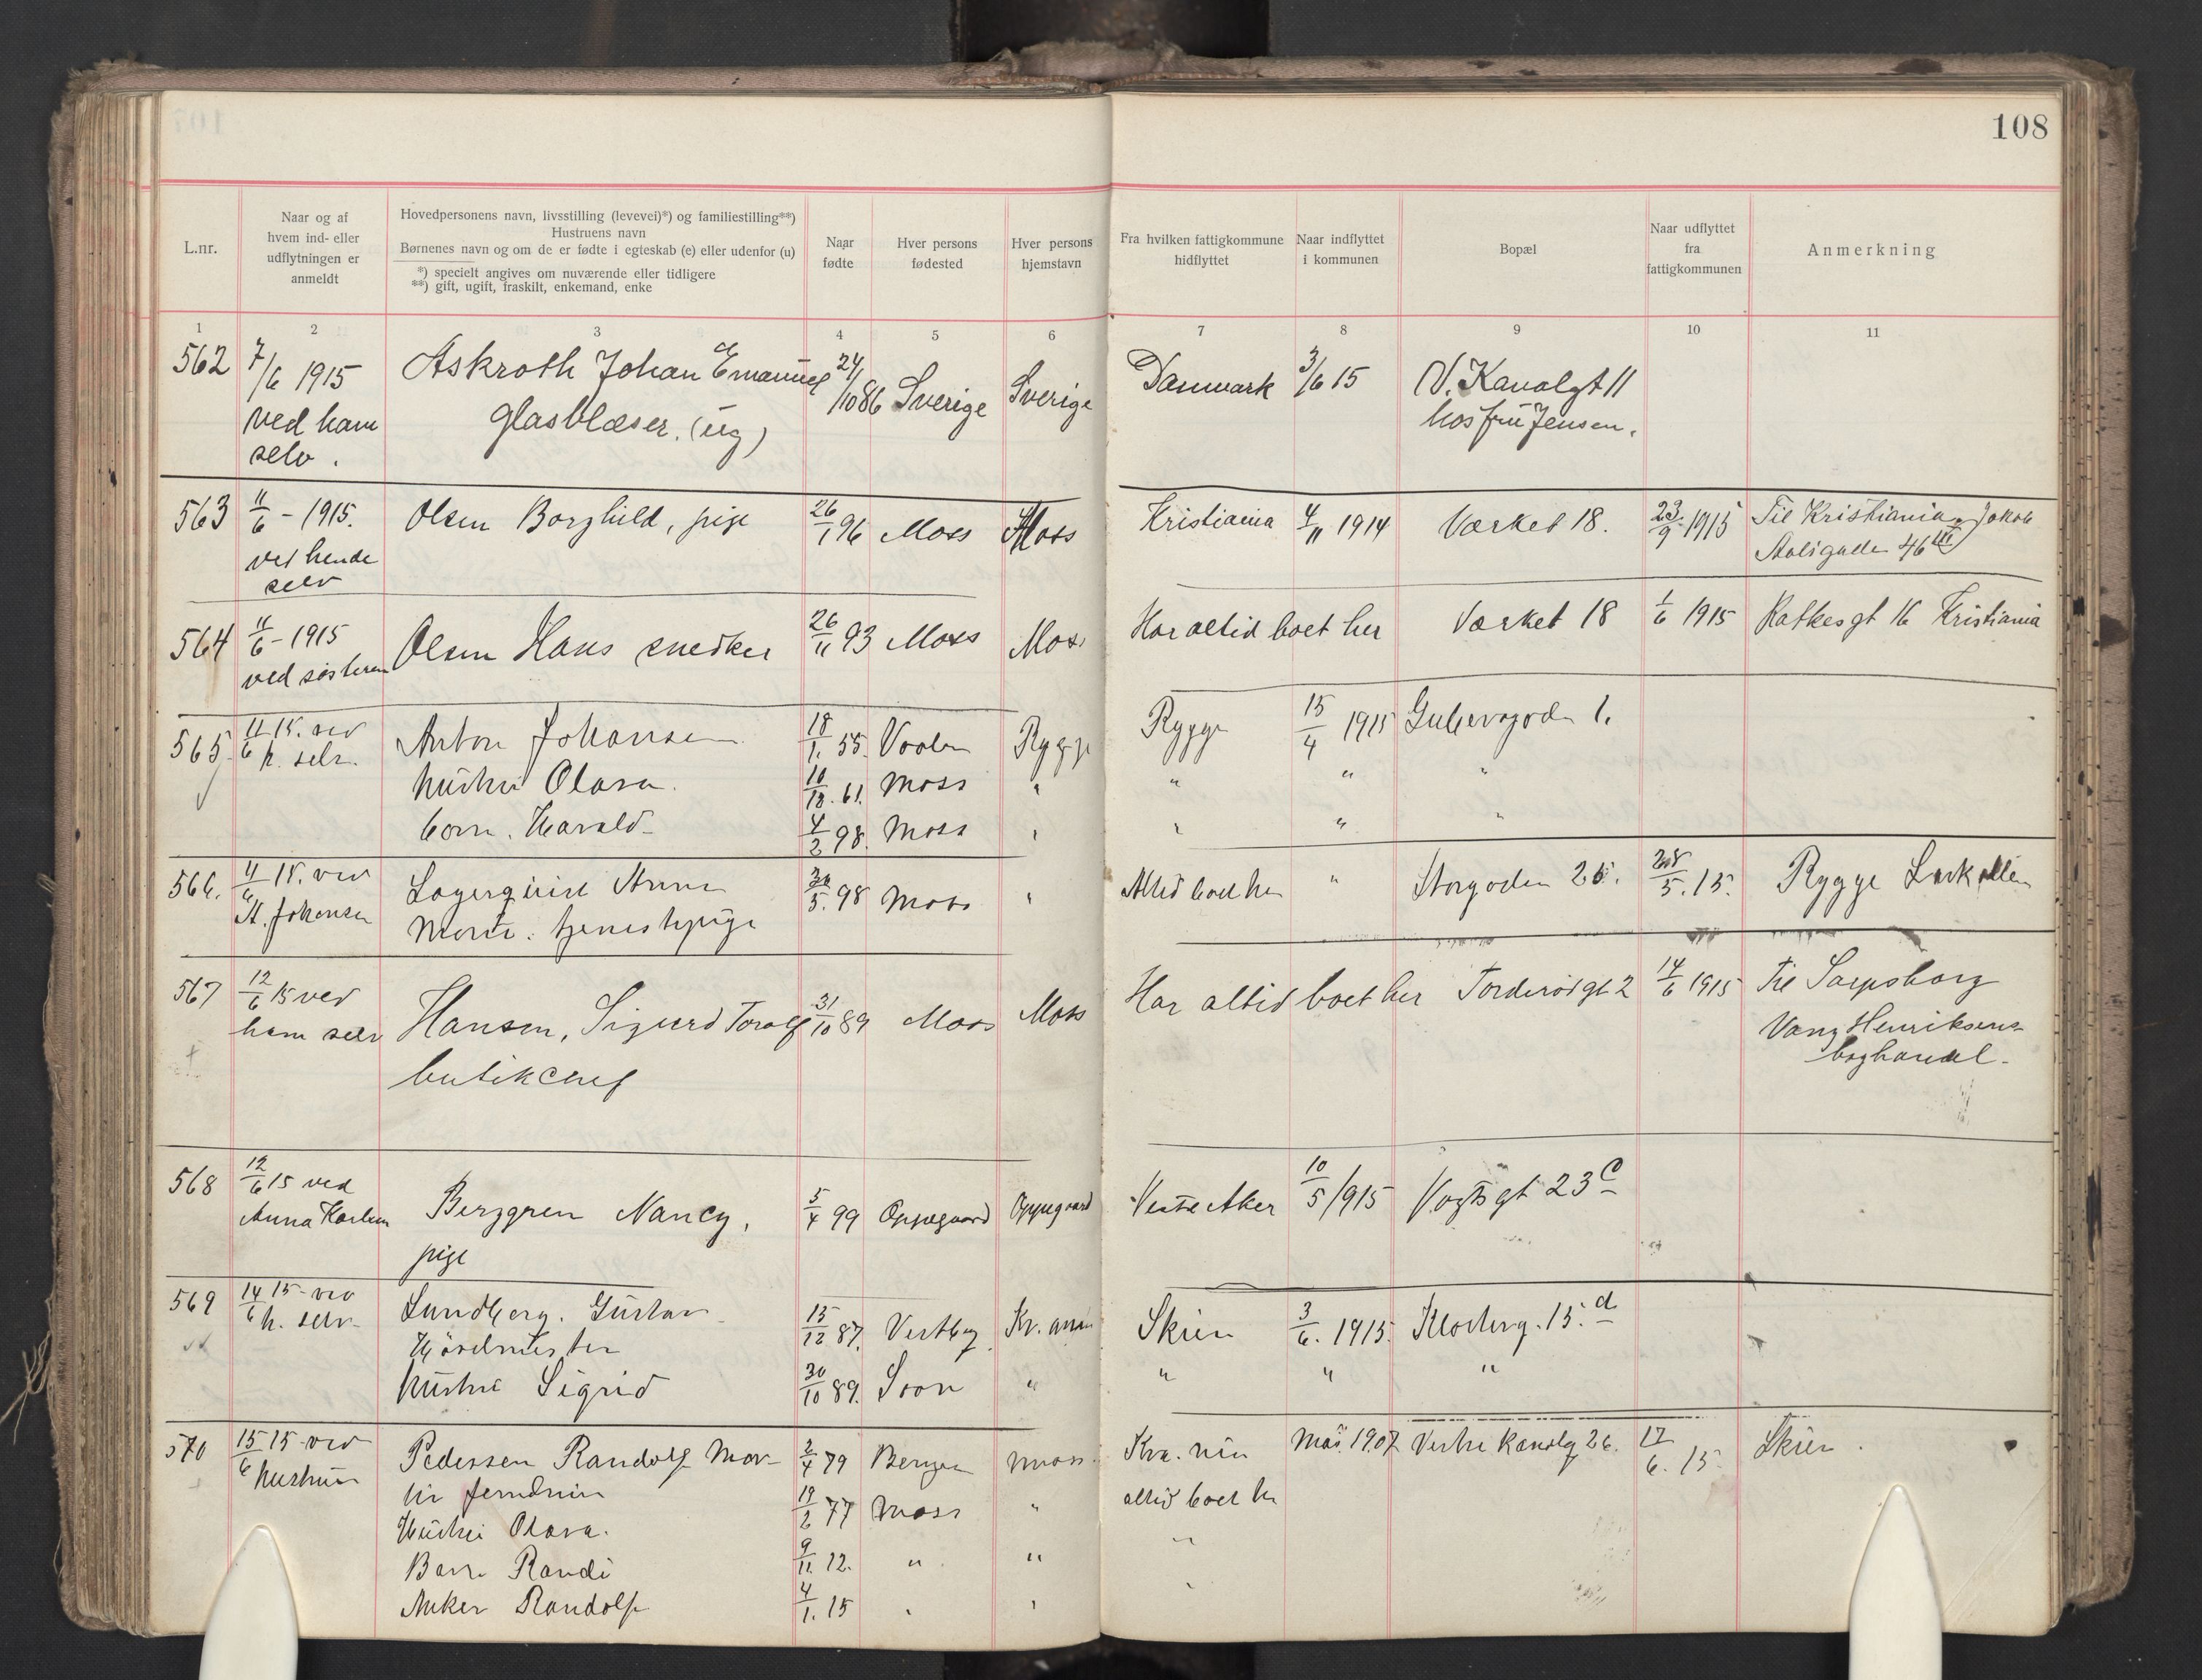 108
L.nr.
Naar og af
hvem ind- eller
udflytningen er
anmeldt
Hovedpersonens navn, livsstilling (levevei)*) og familiestilling**)
Hustruens navn
Børnenes navn og om de er fødte i egteskab (e) eller udenfor (u)
*) specielt angives om nuværende eller tidligere
**) gift, ugift, fraskilt, enkemand, enke
Naar
fødte
Hver persons
fødested
Hver persons
hjemstavn
Fra hvilken fattigkommune
hidflyttet
Naar indflyttet
i kommunen
Bopæl
Naar udflyttet
fra
fattigkommunen
Anmerkning
1 2 3 4 5 6 7 8 9 10 11
562 7/6 1915 Askroth Johan Emanuel 24/10 86 Sverige Sverige Danmark 3/6 15 V. Kanalgt 11
ved ham glasblæser. (ug) hos fru Jensen.
selv.
563 11/6 - 1915. Olsen Borghild, pige 26/1 96 Moss Moss Kristiania 4/11 1914 Værket 18. 23/9 1915 Til Kristiania, Jakob
ved hende Aalsgaden 46 III
selv
564 11/6 - 1915 Olsen Hans snedker 26/11 93 Moss Moss Har altid boet her Værket 18 1/6 1915 Ratkesgt 16 Kristiania
ved søsteren
565. 11/6 15. ved Anton Johansen 18/1. 55. Vaaler Rygge Rygge 15/4 1915 1.
h. selv. hustru Olava. 10/12. 61. Moss " " " "
barn. Harald 4/2 98. Moss " " " "
566. 11/6 15. ved Lagerquist Anna 30/5. 98 Moss " Altid boet her " Storgaden 25. 28/5. 15. Rygge Larkollen
A. Johansen Marie. tjenestepige
567 12/6 15 ved Hansen, Sigurd Toralf 31/10 89 Moss Moss Har altid boet her Torderødgt 2 14/6 1915 Til Sarpsborg
ham selv butikchef Vang Henriksens
boghandel.
568 12/6 15 ved Berggren Nancy, 5/4 99 Oppegaard Oppegaard Vestre Aker 10/5 1915 Vogtsgt 23 C
Anna Karlsen pige
569 14/6 15 ved Lundberg. Gustav 15/12 87. Vestby Kr. ania Skien 3/6. 1915. Klosterg. 15. d
h. selv
hustru Sigrid 30/10 89. Soon " " " "
570 15/6 15 ved Pedersen Randolf Mar- 2/4 79 Bergen Moss Kra. nia Mai. 1907 Vestre Kanalg 26. 17/6. 15. Skien.
hustruen
Hustru Olava. 19/2 77 Moss " altid boet her
Barn Randi 9/11. 12. " " "
Anker Randolf 4/1. 15 " " "